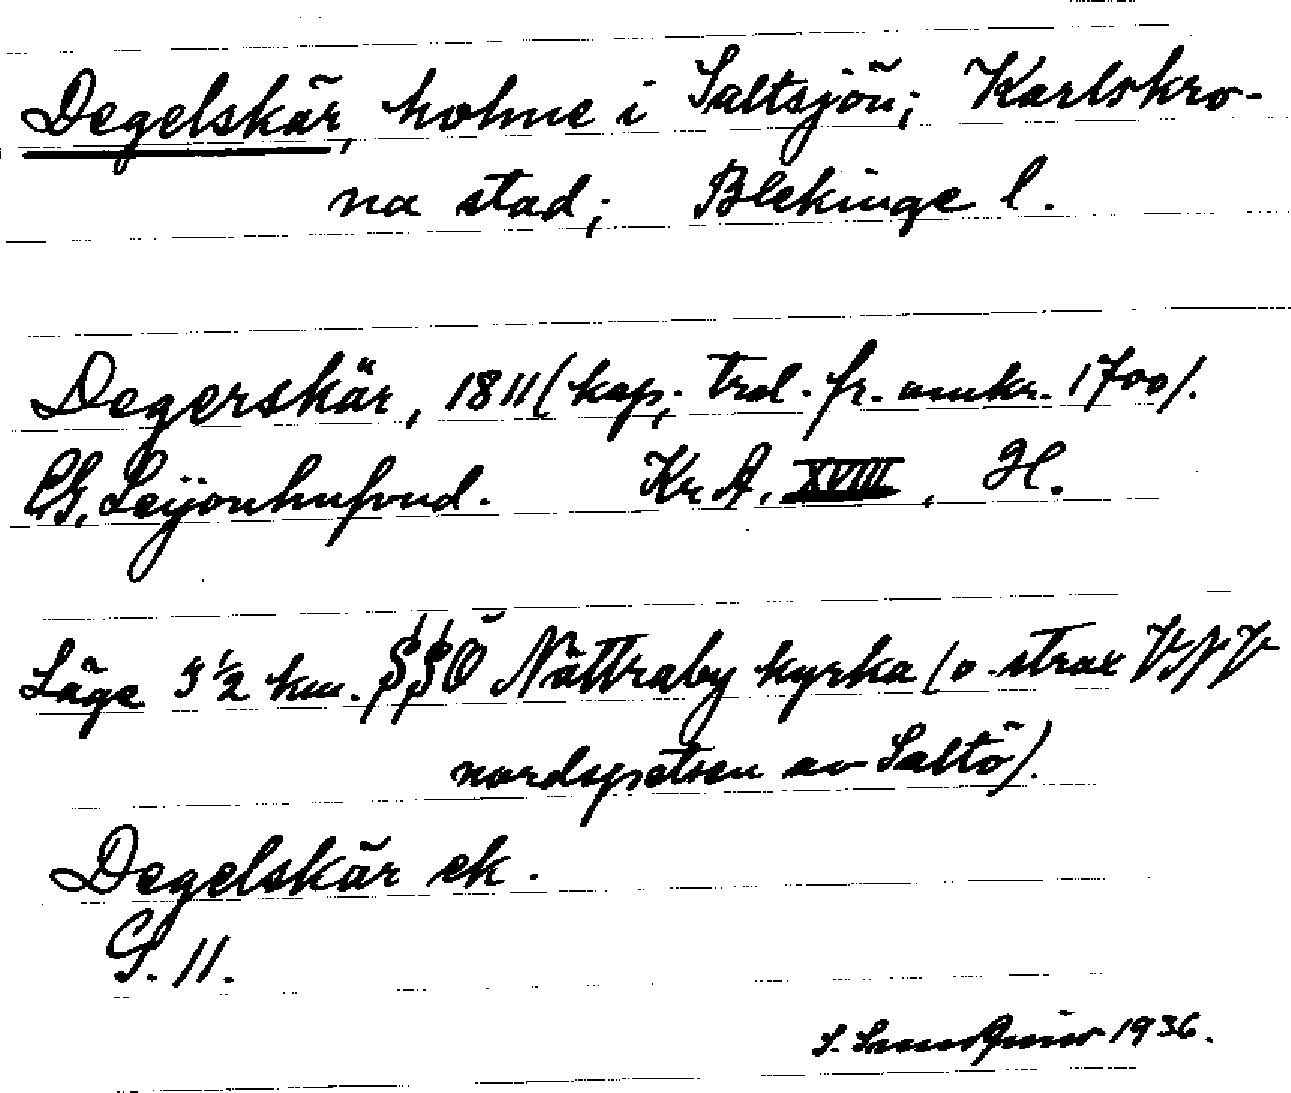 Degelskär, holme i Saltsjön; Karlskro-
na stad; Blekinge l.
Degerskär, 1811 (kop; trol. fr. omkr. 1700).
CG. Leijonhufvud. Kr A. XVIII, H.
Läge 5 1/2 km. SSÖ Nättraby kyrka (o strax VNV
nordspetsen av Saltö).
Degelskär ek.
G. 11.
1936.